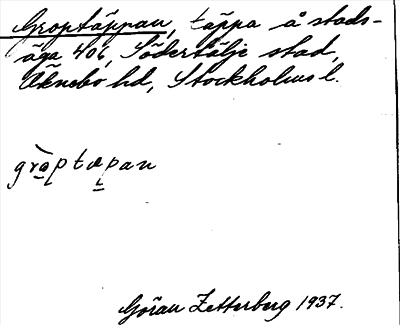 Groptäppan, täppa å stads-
äga 406, Södertälje stad,
Öknebo hd, Stockholms l.
Göran Zetterberg 1937.